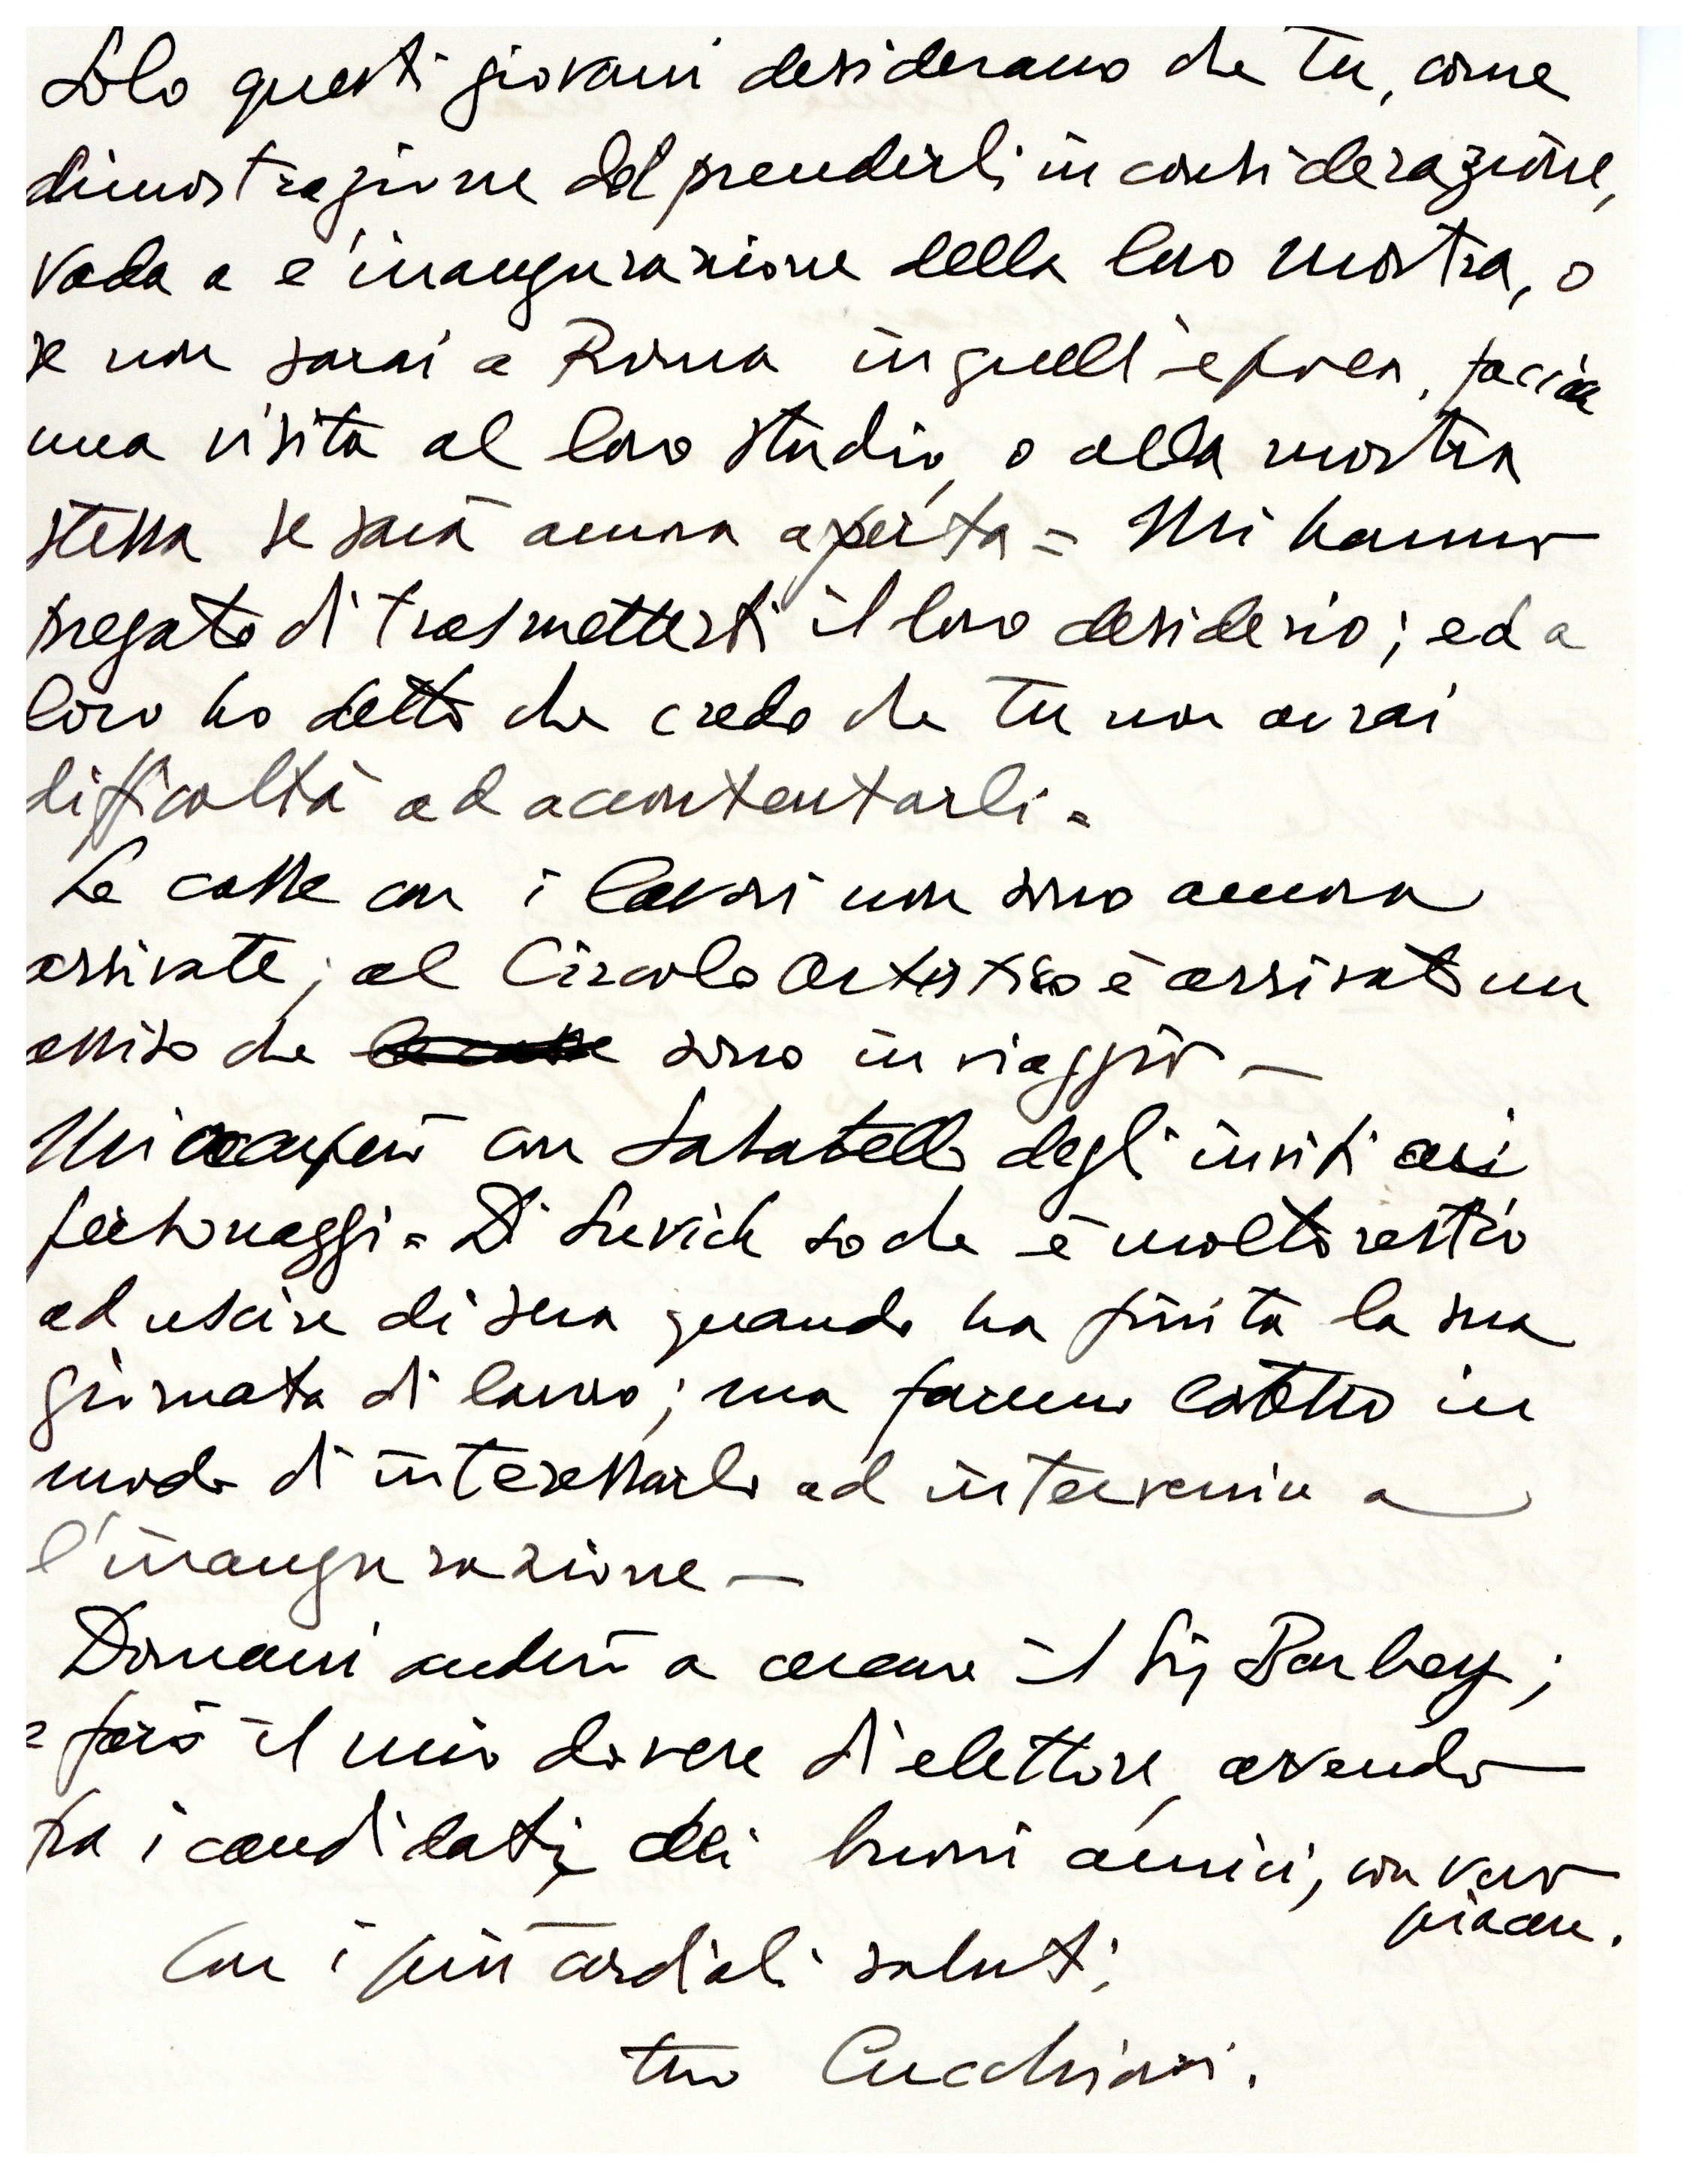 Solo questi giovani desiderano che tu, come
dimostrazione del prenderli in considerazione,
vada a l'inaugurazione della loro mostra, o
se non sarai a Roma in quell'epoca, faccia
una visita al loro studio, o alla mostra
stessa se sarà ancora aperta = Mi hanno
pregato di trasmetterti il loro desiderio; ed a
loro ho detto che credo che tu non avrai
difficoltà ad accontentarli =
Le casse con i lavori non sono ancora
arrivate; al Circolo Artistico è arrivato un
avviso che sono in viaggio —
Mi occuperò con Sabatello degli inviti ai
personaggi = Di Suvich so che è molto restio
ad uscire di sera quando ha finita la sua
giornata di lavoro; ma faremo in
modo di interessarlo ad intervenire a
l'inaugurazione —
Domani andrò a cercare il Sig Barbey;
e farò il mio dovere di elettore, avendo
tra i candidati, dei buoni amici, con vero
piacere.
Con i più cordiali saluti,
tuo Cucchiari.